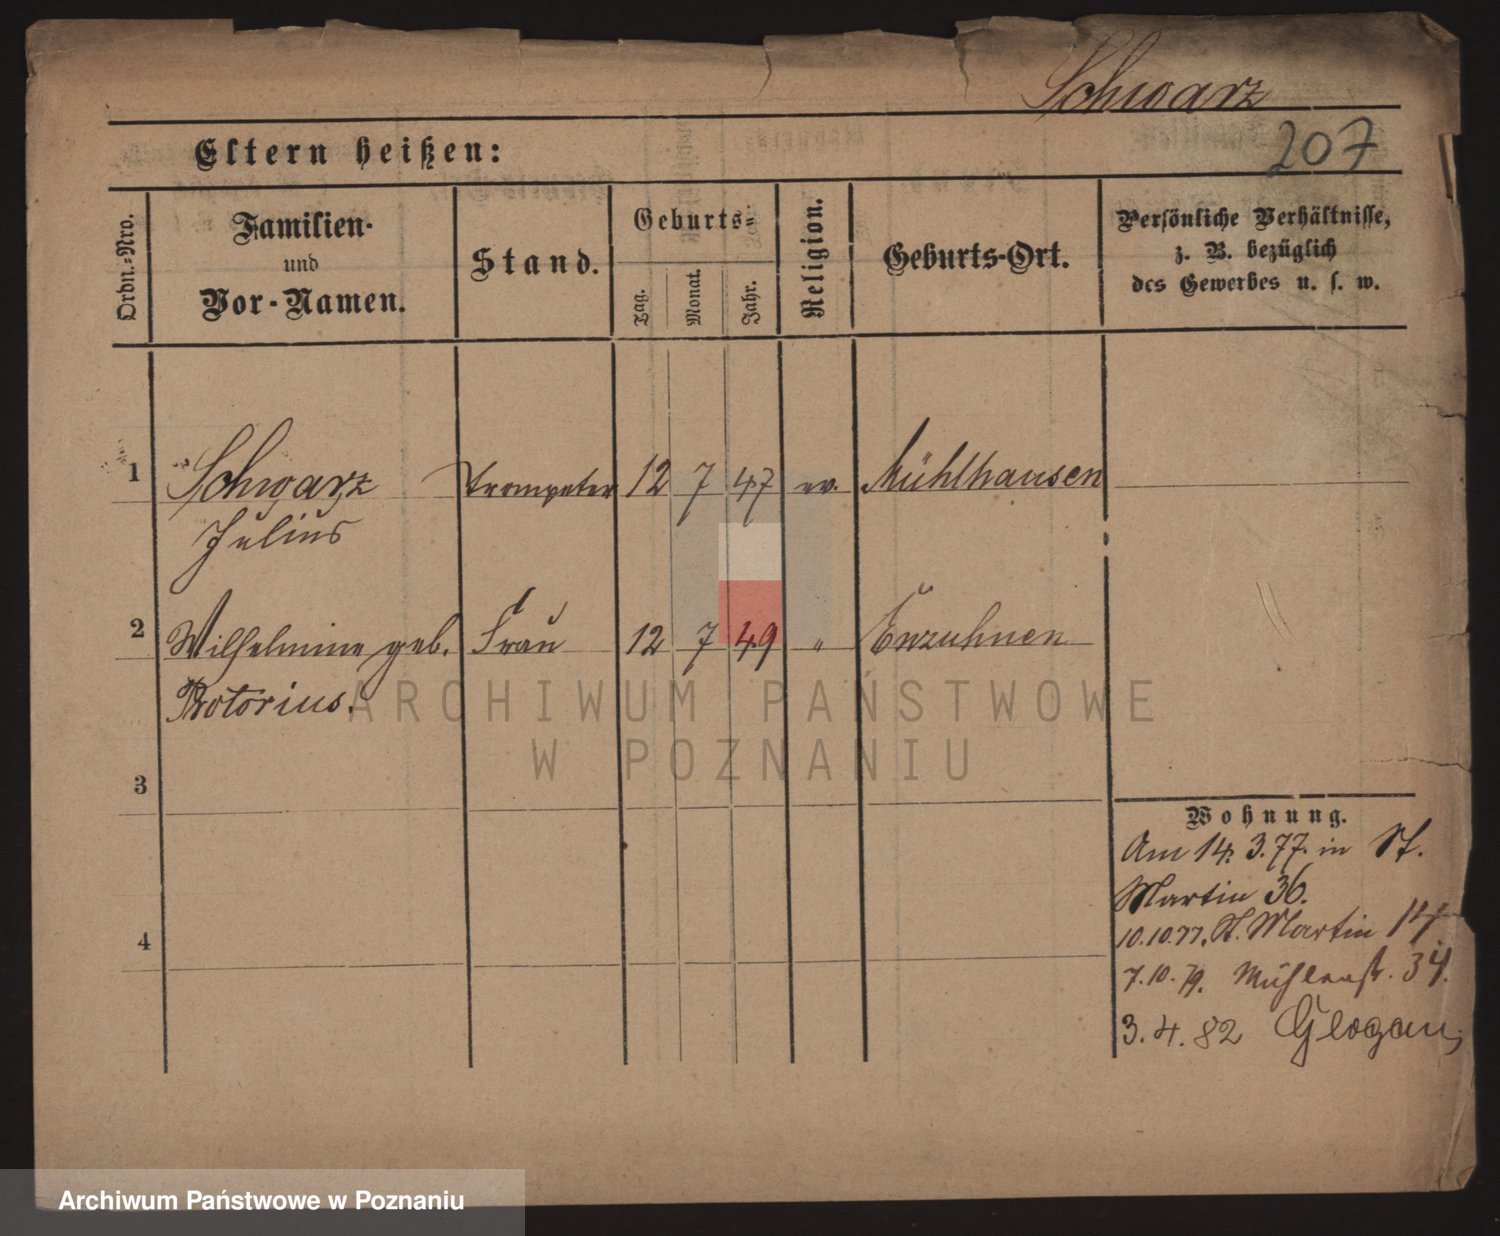 Schwarz
207
Eltern heißen:
Ordn.-Nro.
Familien-
und
Vor-Namen.
Stand.
Geburts-
Tag.
Monat.
Jahr.
Religion.
Geburts-Ort.
Persönliche Verhältnisse,
z. B. bezüglich
des Gewerbes u. s. w.
1 Schwarz Trompeter 12 7 47 ev. Mühlhausen
Julius
2 Wilhelmine geb. Frau 12 7 49 " Enzuhnen
ARCHIWUM PAŃSTWOWE
W POZNANIU
3
4
Wohnung.
Am 14. 3. 77. in St.
Martin 36.
10.10.77. St. Martin 14
7.10.79. Mühlenstr. 34.
3. 4. 82 Glogau
Archiwum Państwowe w Poznaniu